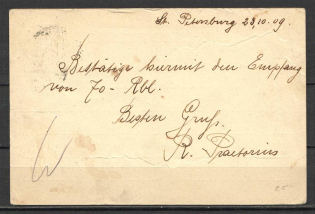 St. Petersburg 23.10.09.
Bestätige hiermit den Empfang
von 70 - Rbl.
Besten Gruß.
R. Praetorius